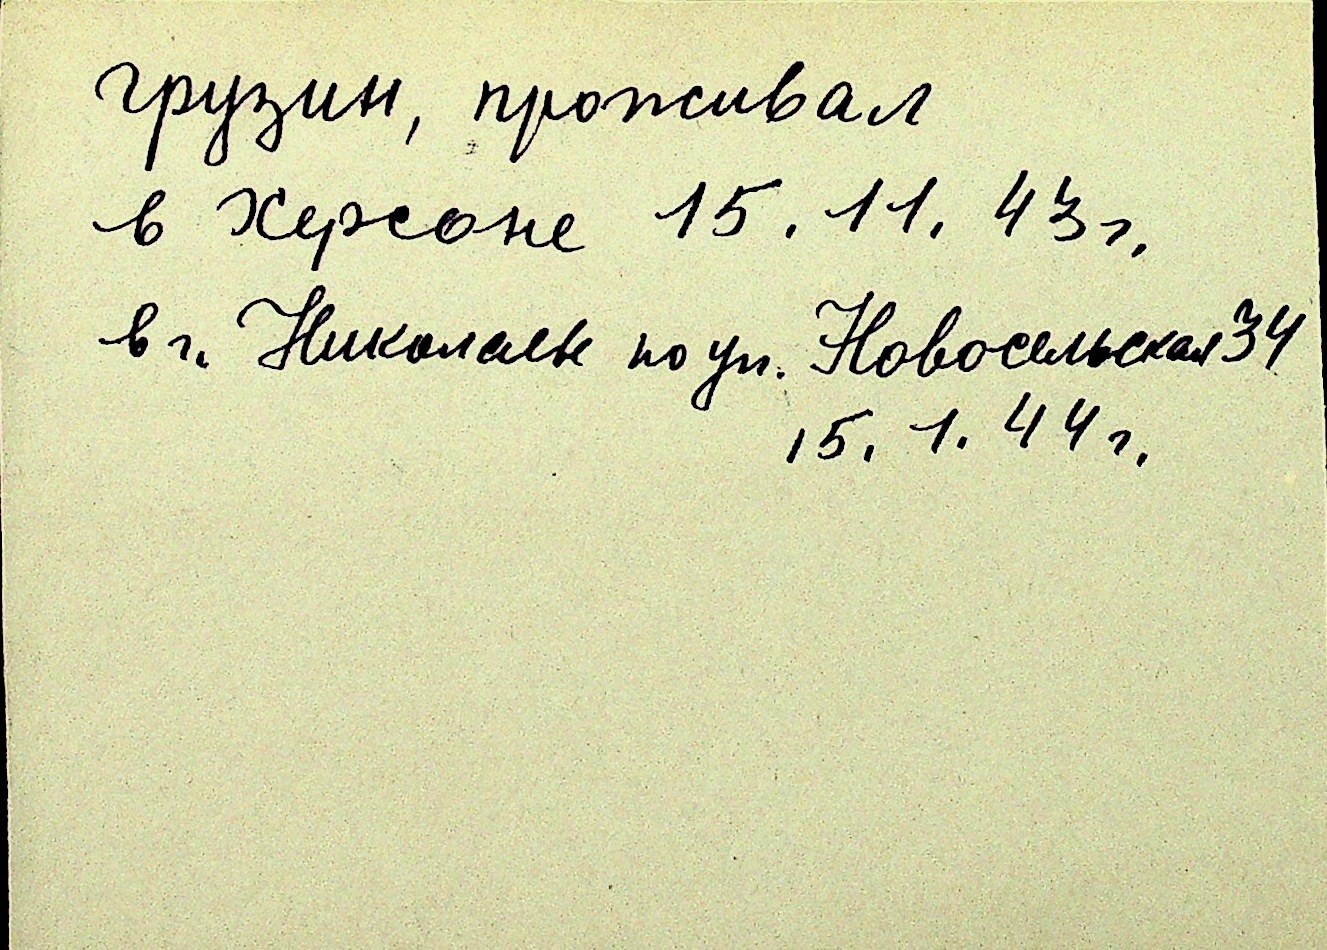 грузин, проживал
в Херсоне 15.11.43г.
в г. Николаев по ул. Новосельская 34
15.1.44г.